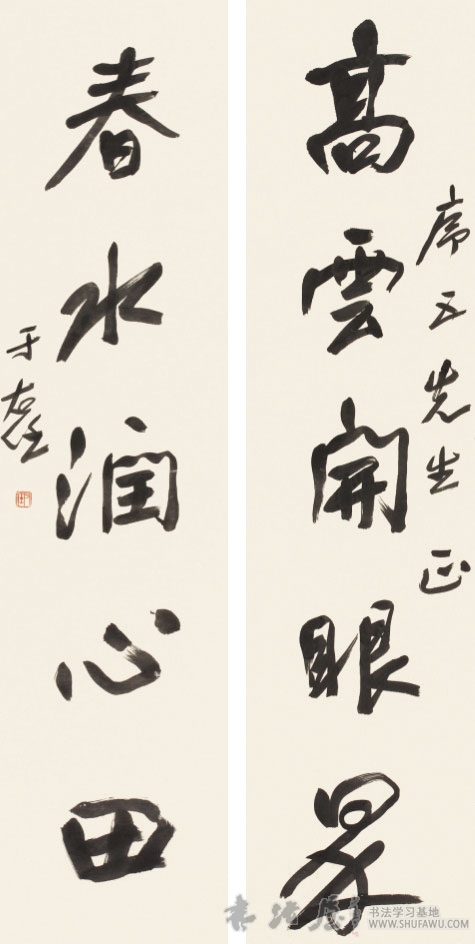 席五先生正
高雲開眼界
春水潤心田
于右任
书法学习基地
WWW.SHUFAWU.COM